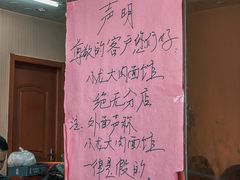 声明
尊敬的客户您们好:
小龙大肉面馆
绝无分店
注:外面声称
小龙大肉面馆
一律是假的